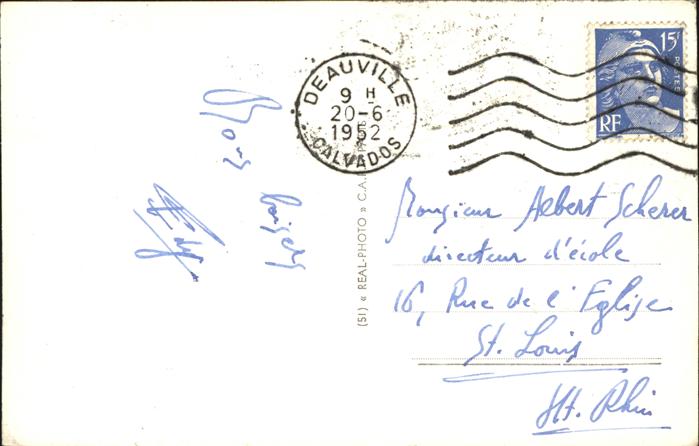 DEAUVILLE
9 H
20-6
1952
CALVADOS
15F
POSTES
RF
Bons
baisers
(51) « REAL-PHOTO » C.A.P.
Monsieur Albert Scherer
directeur d'école
16, Rue de l'Eglise
St. Louis
Ht. Rhin